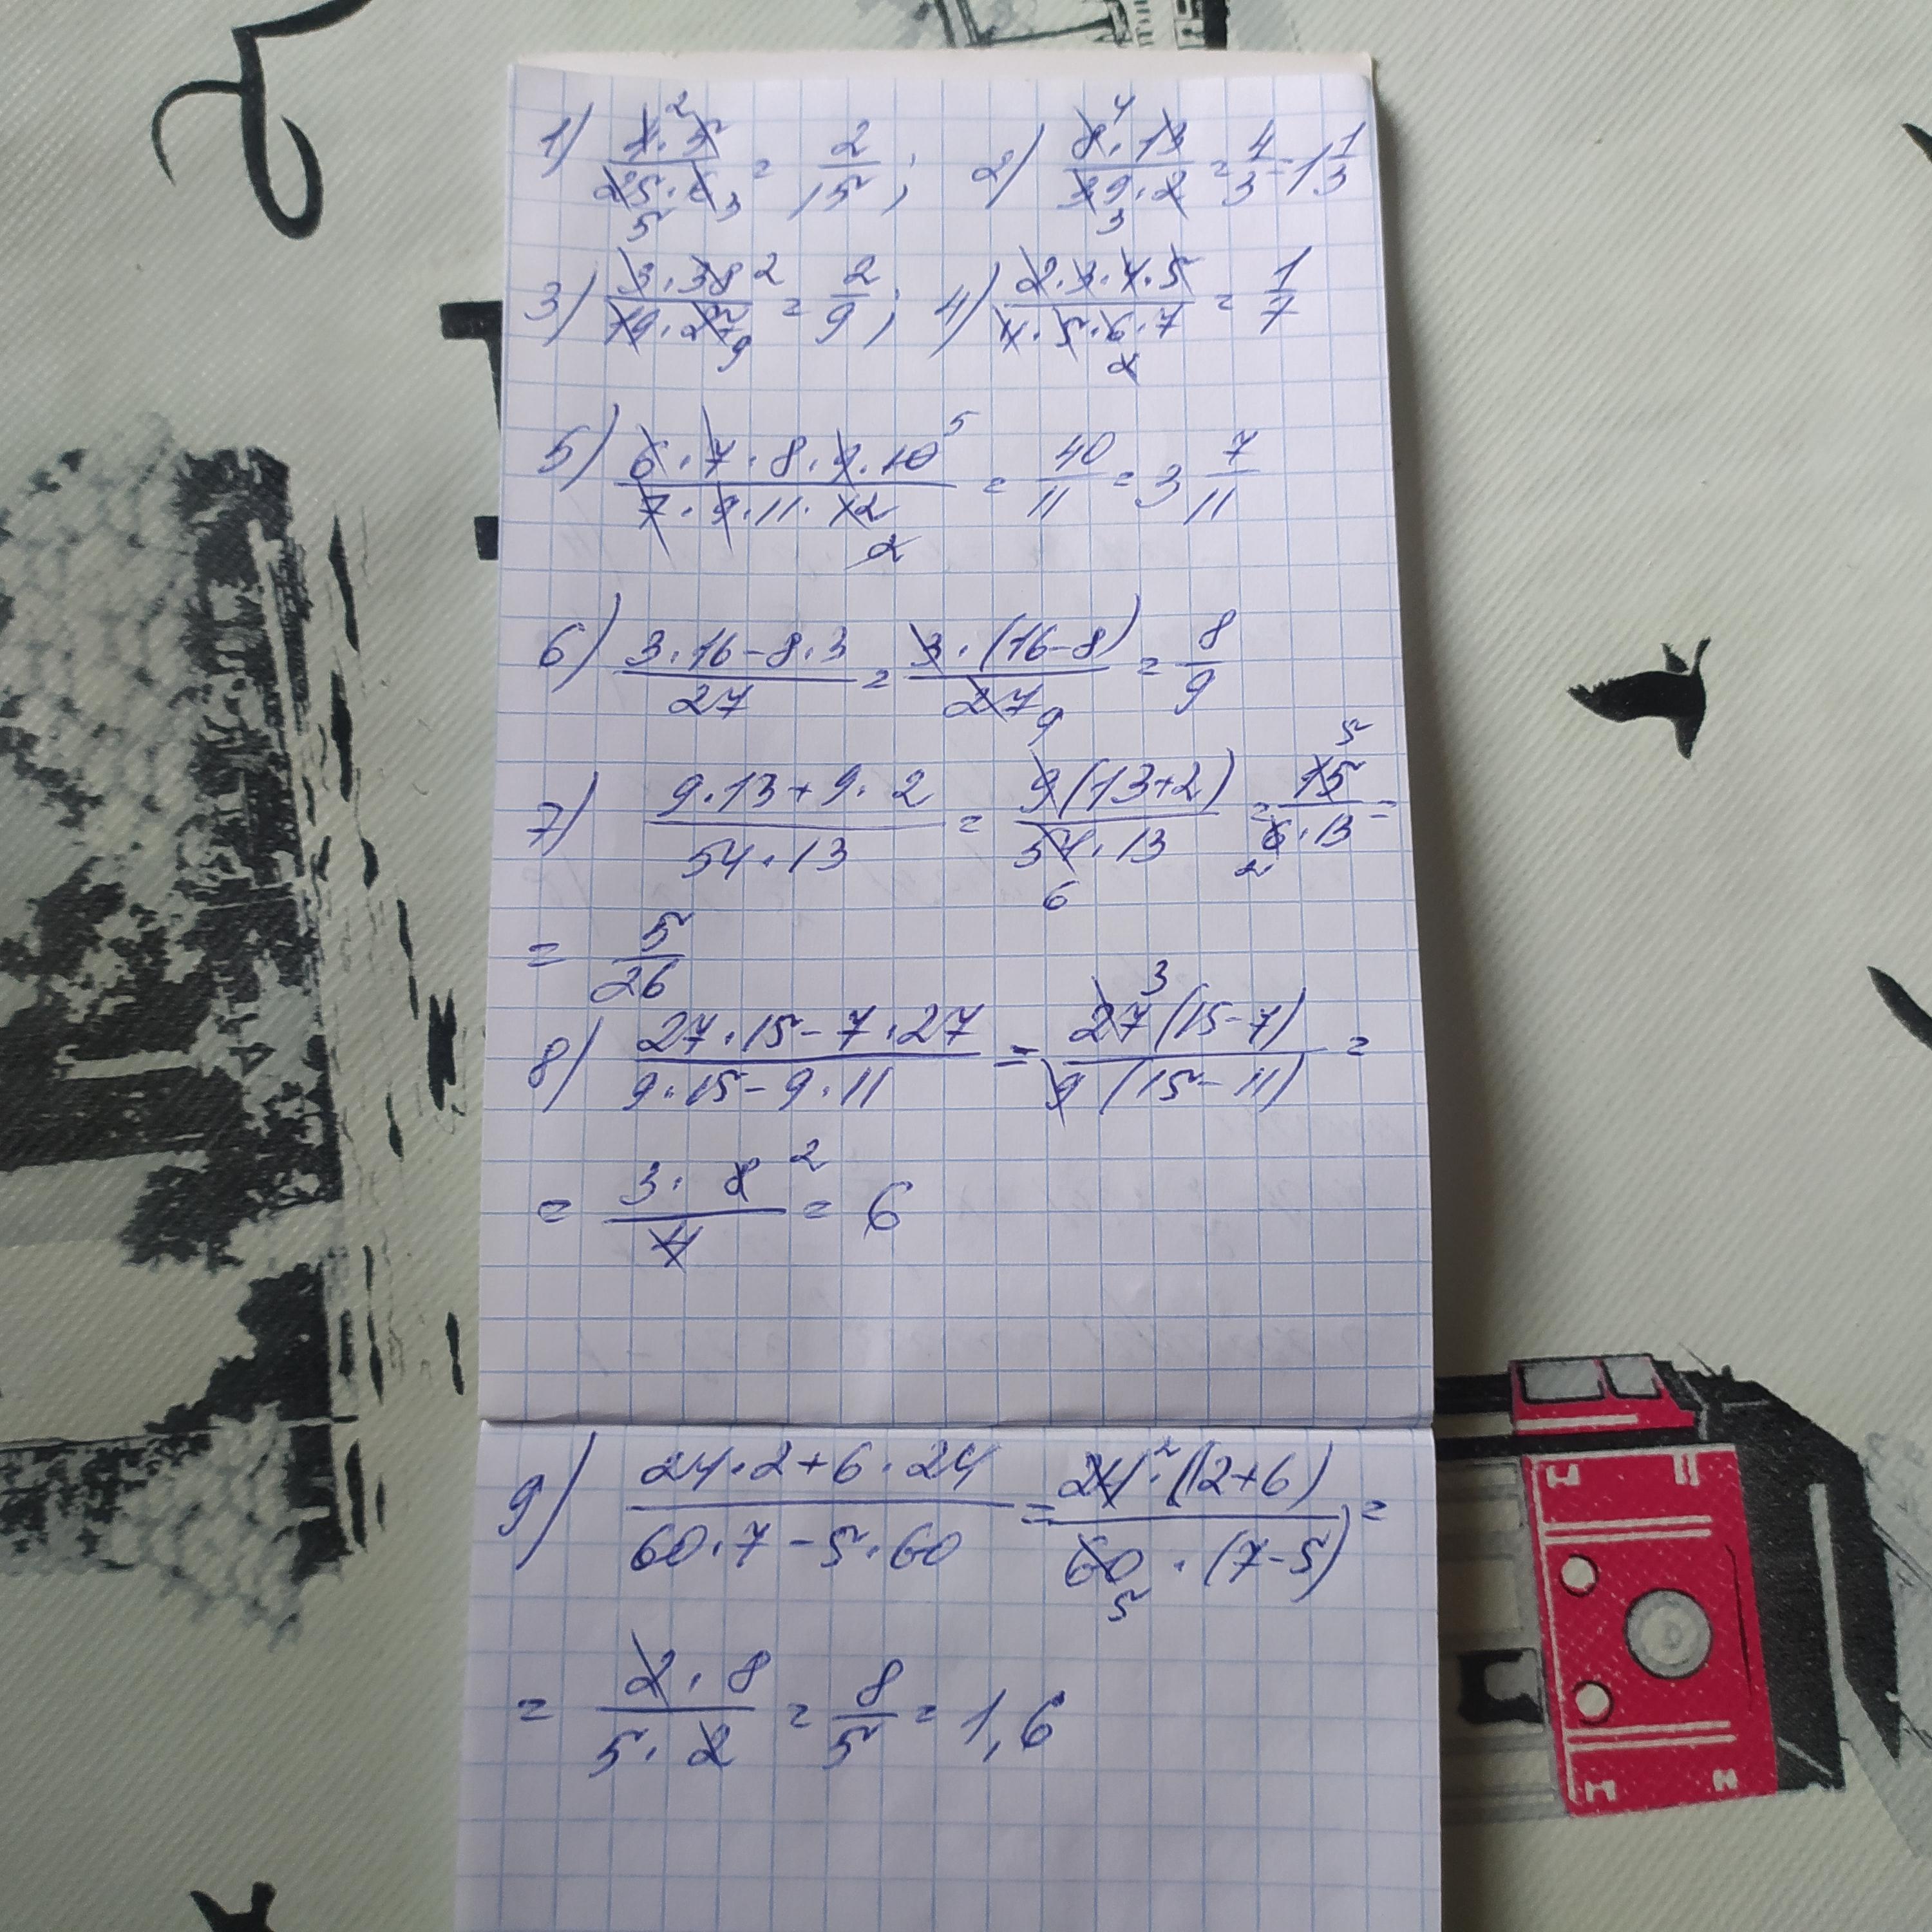 1) (4·5)/(25·6) = 2/15; 2) (8·13)/(39·2) = 4/3 = 1 1/3
3) (3·38)/(19·27) = 2/9; 4) (2·3·4·5)/(4·5·6·7) = 1/7
5) (6·7·8·9·10)/(7·9·11·12) = 40/11 = 3 7/11
6) (3·16-8·3)/27 = (3·(16-8))/27 = 8/9
7) (9·13+9·2)/(54·13) = (9(13+2))/(54·13) = 15/(6·13) =
= 5/26
8) (27·15-7·27)/(9·15-9·11) = (27(15-7))/(9(15-11)) =
= (3·8)/4 = 6
9) (24·2+6·24)/(60·7-5·60) = (24·(2+6))/(60·(7-5)) =
= (2·8)/(5·2) = 8/5 = 1,6